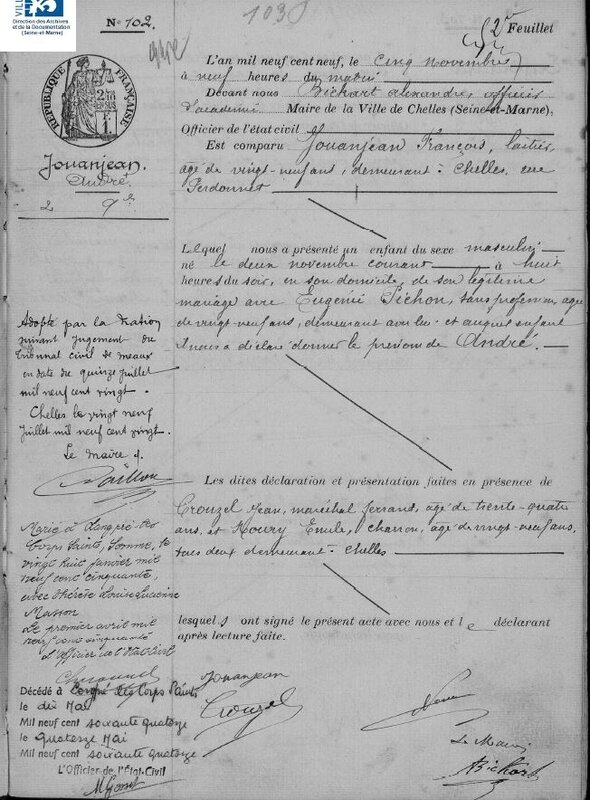 VILLE
Direction des Archives
et de la Documentation
(Seine-et-Marne)
No 102.
1030
52e Feuillet
RÉPUBLIQUE FRANÇAISE
L'an mil neuf cent neuf, le cinq novembre
à neuf heures du matin
Devant nous Bichart Alexandre, officier
d'académie Maire de la Ville de Chelles (Seine-et-Marne),
Officier de l'état civil
Est comparu Jouanjean François, laitier,
âgé de vingt-neuf ans, demeurant à Chelles, rue
Perdonnet
Jouanjean.
André.
Lequel nous a présenté un enfant du sexe masculin
né le deux novembre courant à huit
heures du soir, en son domicile, de son légitime
mariage avec Eugénie Pichon, sans profession, âgée
de vingt-neuf ans, demeurant avec lui et auquel enfant
il nous a déclaré donner le prénom de André.
Adopté par la Nation
suivant jugement du
Tribunal civil de Meaux
en date du quinze juillet
mil neuf cent vingt.
Chelles le vingt neuf
juillet mil neuf cent vingt.
Le Maire
Les dites déclaration et présentation faites en présence de
Crouzel Jean, maréchal ferrand, âgé de trente-quatre
ans, et Noury Emile, charron, âgé de vingt-neuf ans,
tous deux demeurant à Chelles
lesquels ont signé le présent acte avec nous et le déclarant
après lecture faite.
Marié à Longpré-les
Corps Saints, Somme, le
vingt huit janvier mil
neuf cent cinquante,
avec Thérèse Louise Lucienne
Masson
Le premier avril mil
neuf cent cinquante
L'Officier de l'Etat Civil
Jouanjean
Crouzel
Le Maire
ABichart
Décédé à Longpré les Corps Saints
le dix Mai
Mil neuf cent soixante quatorze
le quatorze Mai
Mil neuf cent soixante quatorze
L'Officier de l'Etat-Civil